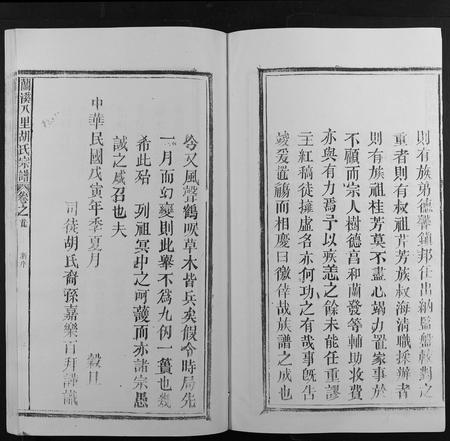 則有族弟德馨鎮邦任出納監齡較對之
重者則有叔祖芹芳族叔海清職採辦者
則有族祖桂芳莫不盡心竭力置家事於
不顧而宗人樹德富和蘭發等輔助收費
亦與有力焉予以疾恙之餘未能任重謬
主紅稿徒擁虛名亦何功之有哉事既告
竣爰進觴而相慶曰徽倖哉族譜之成也
於又風聲鶴唳草木皆兵矣假令時局先
一月而幻變則此舉不為九仞一簣也幾
希此殆 列祖冥中之呵護而亦諸宗愚
誠之感召也夫
中華民國戊寅年季夏月 穀旦
司徒胡氏裔孫嘉樂百拜謹識
蘭谿八里胡氏宗譜 卷之首 新序